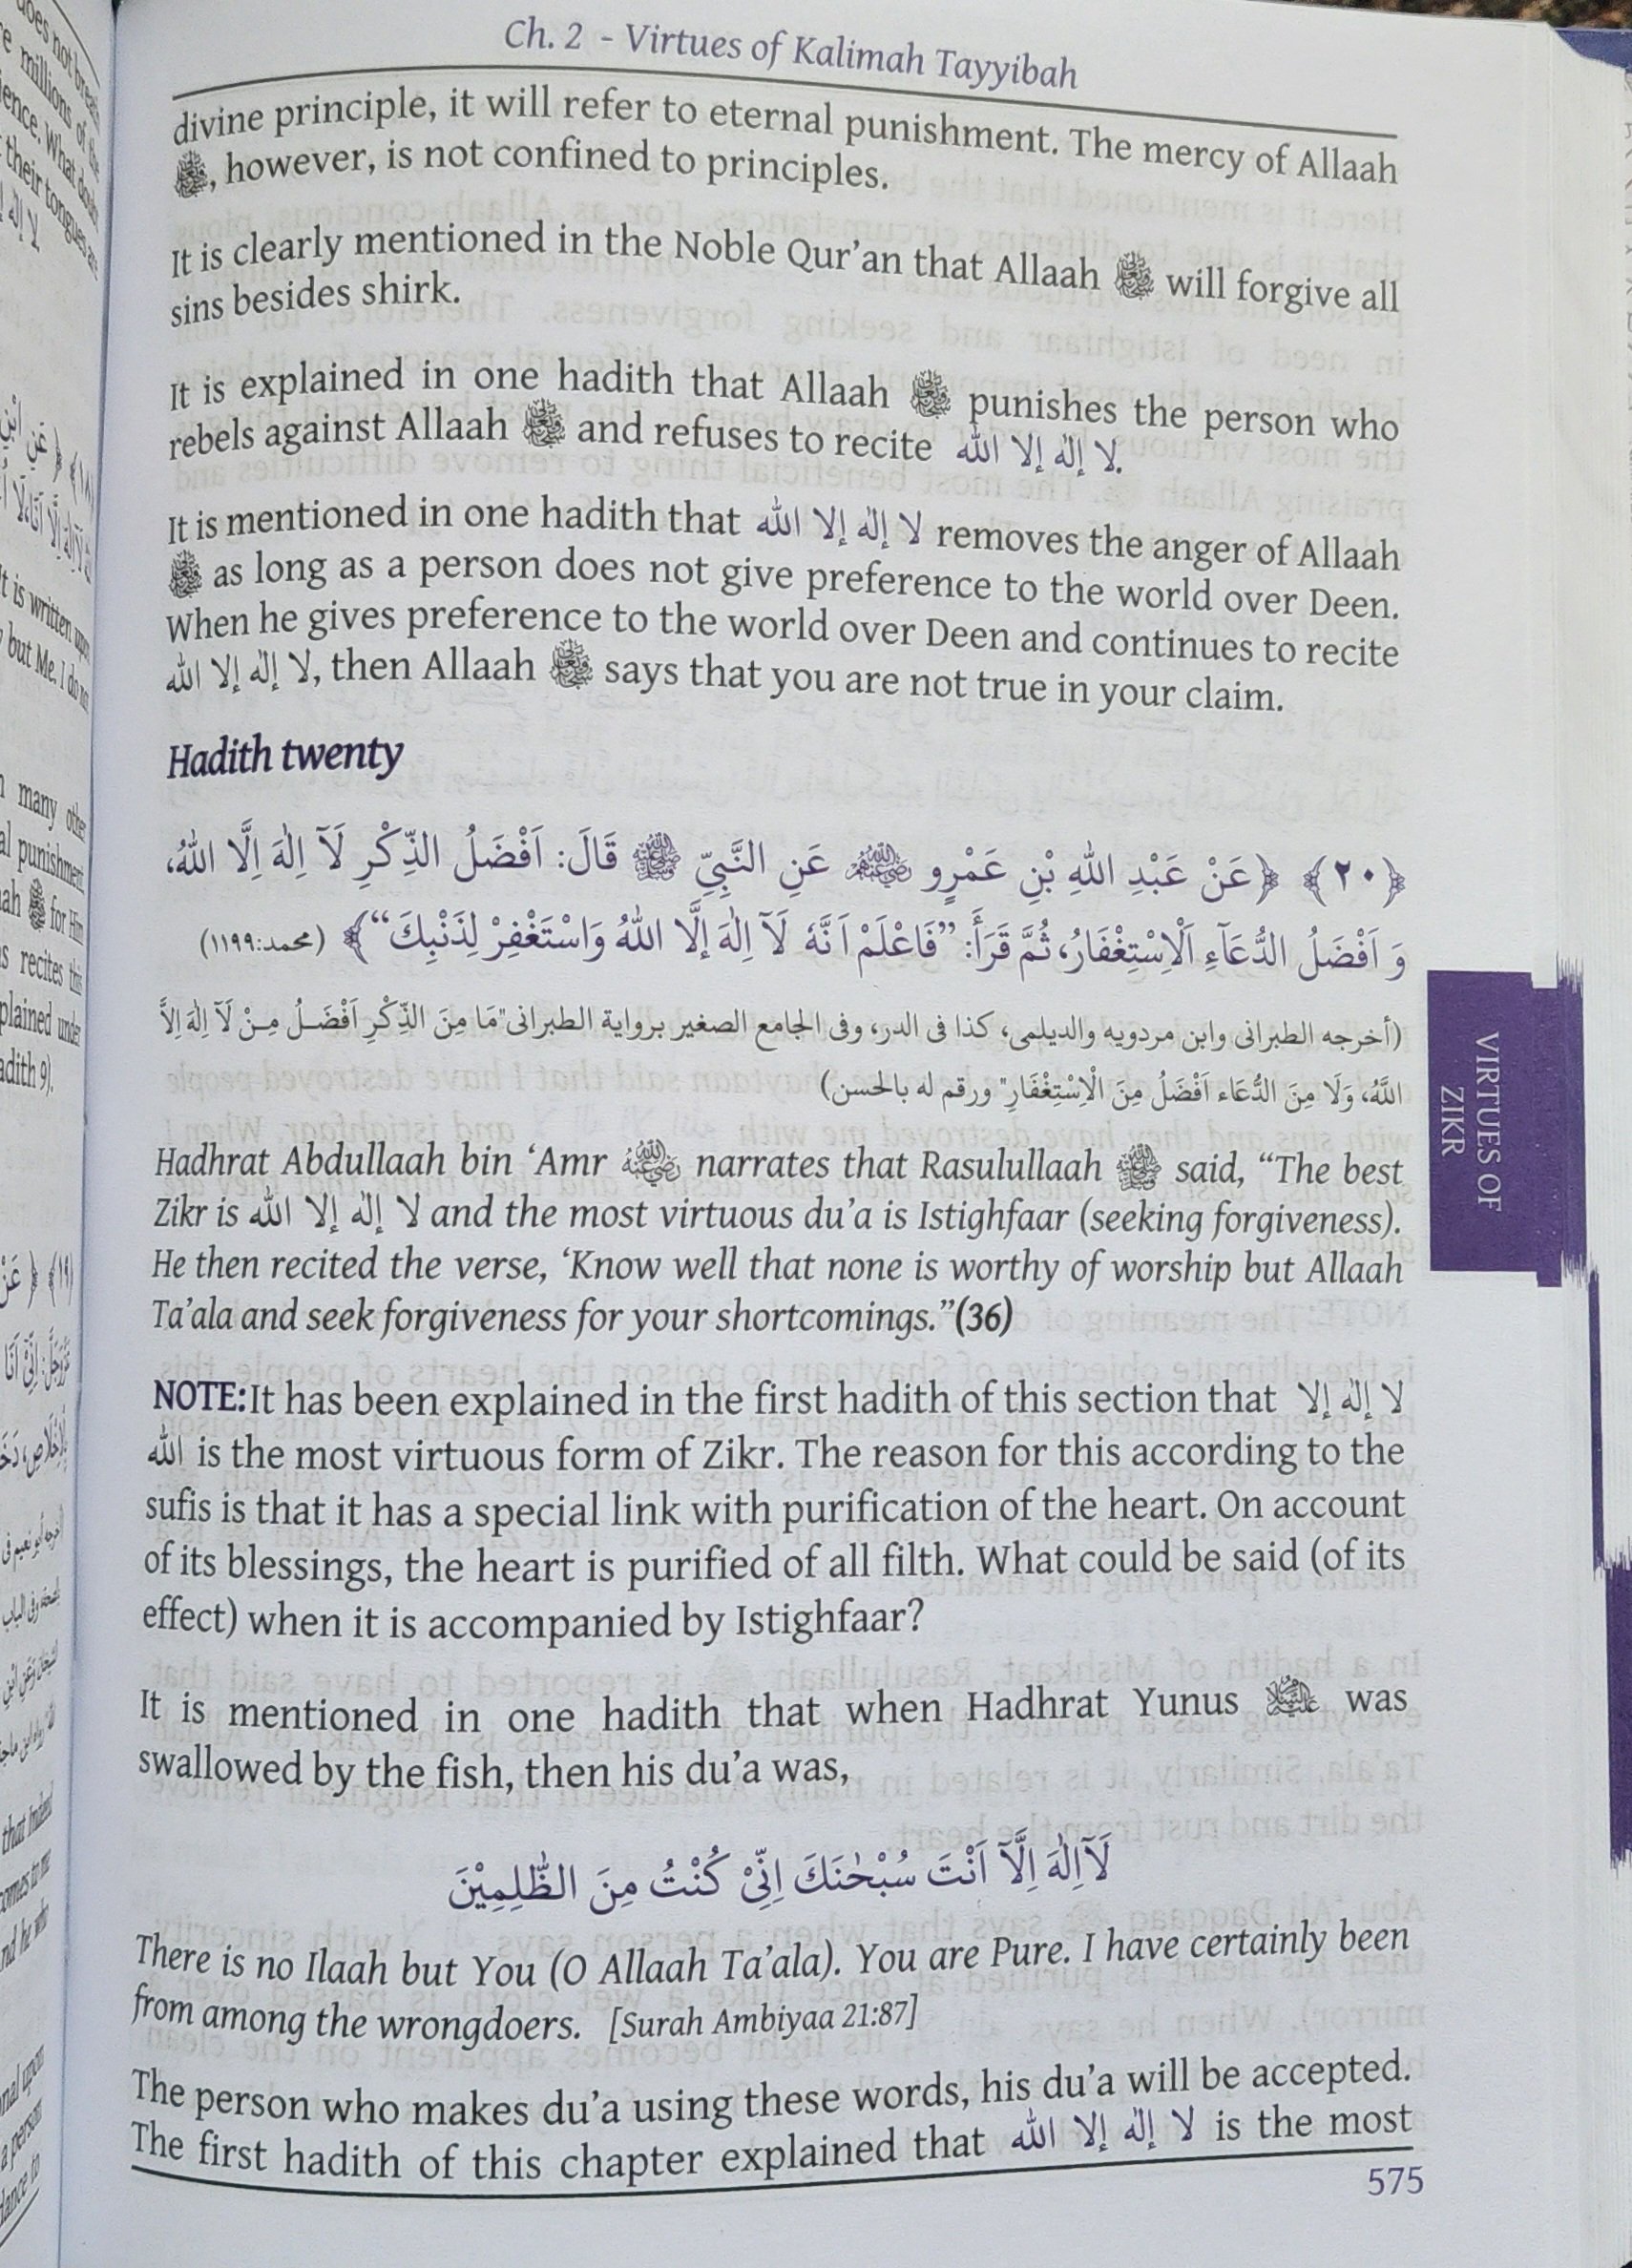 Ch. 2 - Virtues of Kalimah Tayyibah
divine principle, it will refer to eternal punishment. The mercy of Allaah
ﷻ, however, is not confined to principles.
It is clearly mentioned in the Noble Qur’an that Allaah ﷻ will forgive all
sins besides shirk.
It is explained in one hadith that Allaah ﷻ punishes the person who
rebels against Allaah ﷻ and refuses to recite لا إله إلا الله.
It is mentioned in one hadith that لا إله إلا الله removes the anger of Allaah
ﷻ as long as a person does not give preference to the world over Deen.
When he gives preference to the world over Deen and continues to recite
لا إله إلا الله, then Allaah ﷻ says that you are not true in your claim.
Hadith twenty
﴿٢٠﴾ ﴿عَنْ عَبْدِ اللهِ بْنِ عَمْرٍو رضي الله عنهم عَنِ النَّبِيِّ ﷺ قَالَ: اَفْضَلُ الذِّكْرِ لَآ اِلٰهَ اِلَّا اللهُ،
وَ اَفْضَلُ الدُّعَآءِ اَلْاِسْتِغْفَارُ، ثُمَّ قَرَأَ: ”فَاعْلَمْ اَنَّهٗ لَآ اِلٰهَ إِلَّا اللهُ وَاسْتَغْفِرْ لِذَنْبِكَ“﴾ (محمد:١١٩٩)
(أخرجه الطبرانى وابن مردويه والديلمى، كذا فى الدر، وفى الجامع الصغير برواية الطبرانى "مَا مِنَ الذِّكْرِ اَفْضَلُ مِنْ لَآ اِلٰهَ اِلاَّ
اللَّهُ، وَلَا مِنَ الدُّعَاء اَفْضَلُ مِنَ الْاِسْتِغْفَارِ" ورقم له بالحسن)
Hadhrat Abdullaah bin ‘Amr رضي الله عنه narrates that Rasulullaah ﷺ said, “The best
Zikr is لا إله إلا الله and the most virtuous du’a is Istighfaar (seeking forgiveness).
He then recited the verse, ‘Know well that none is worthy of worship but Allaah
Ta’ala and seek forgiveness for your shortcomings.”(36)
NOTE:It has been explained in the first hadith of this section that لا إله إلا
الله is the most virtuous form of Zikr. The reason for this according to the
sufis is that it has a special link with purification of the heart. On account
of its blessings, the heart is purified of all filth. What could be said (of its
effect) when it is accompanied by Istighfaar?
It is mentioned in one hadith that when Hadhrat Yunus عليه السلام was
swallowed by the fish, then his du’a was,
لَآ اِلٰهَ اِلَّآ اَنْتَ سُبْحٰنَكَ اِنِّىْ كُنْتُ مِنَ الظّٰلِمِيْنَ
There is no Ilaah but You (O Allaah Ta’ala). You are Pure. I have certainly been
from among the wrongdoers. [Surah Ambiyaa 21:87]
The person who makes du’a using these words, his du’a will be accepted.
The first hadith of this chapter explained that لا إله إلا الله is the most
575
VIRTUES OF
ZIKR